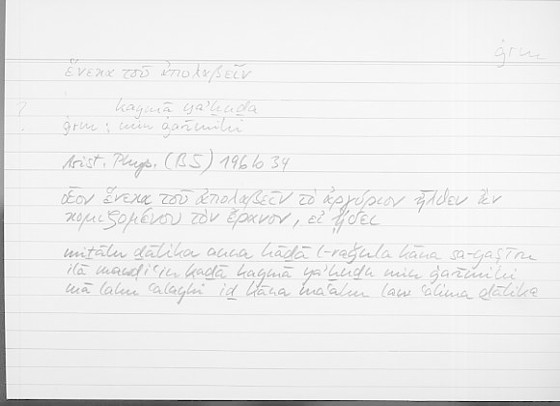 ġrm
ἕνεκα τοῦ ἀπολαβεῖν
? kaymā ya'ḫuḏa
ġrm : min ġarīmihī
Arist. Phys. (B5) 196b 34
οἷον ἕνεκα τοῦ ἀπολαβεῖν τὸ ἀργύριον ἦλθεν ἂν
κομιζομένου τὸν ἔρανον, εἰ ᾔδει
miṯālu ḏālika anna hāḏā l-raǧula kāna sa-yaṣīru
ilā mawḍiʿin kaḏā kaymā ya'ḫuḏa min ġarīmihī
mā lahū ʿalayhi iḏ kāna maʿahū law ʿalima ḏālika